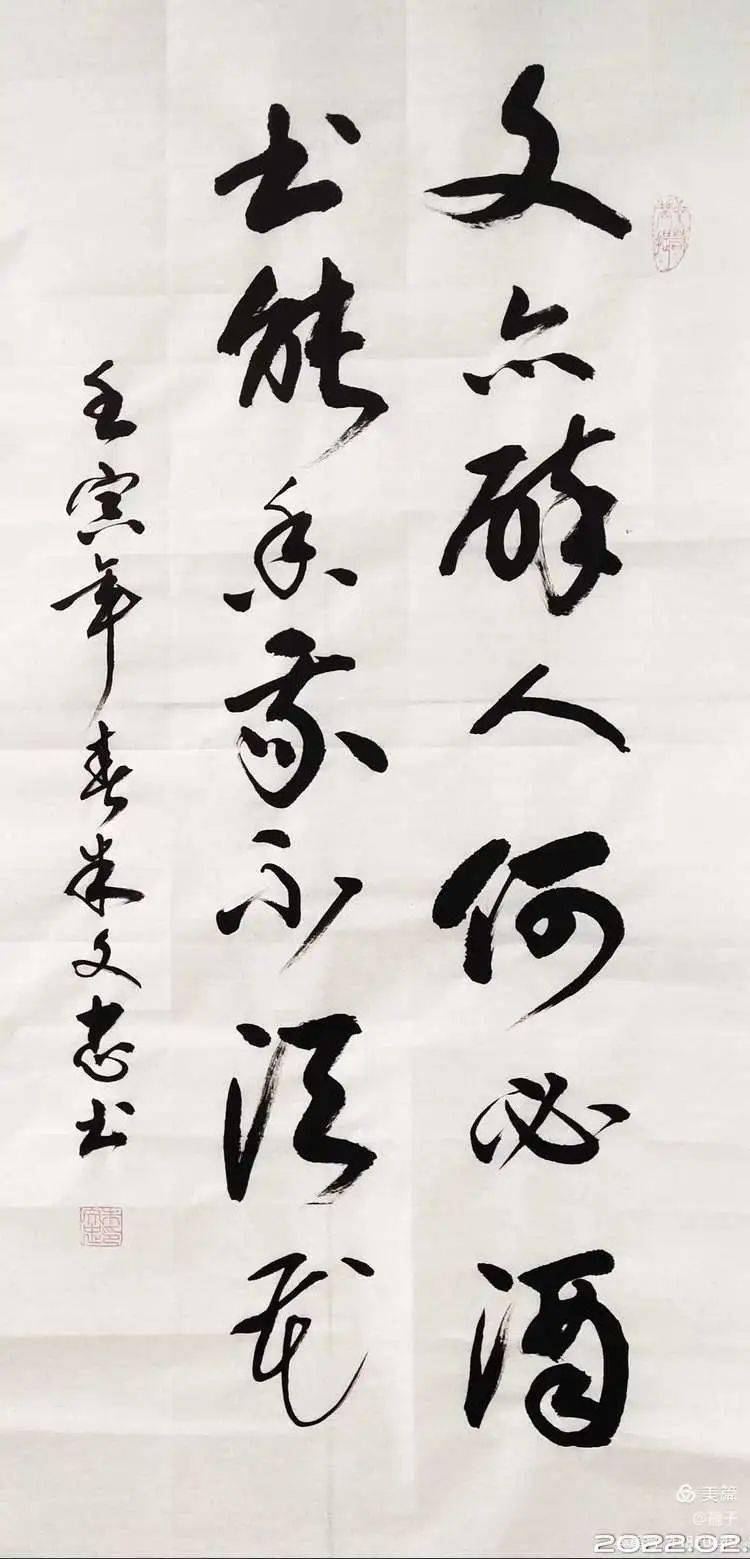 文亦醉人何必酒
书能香我不须花
壬寅年春朱文忠书
美篇
2022.02